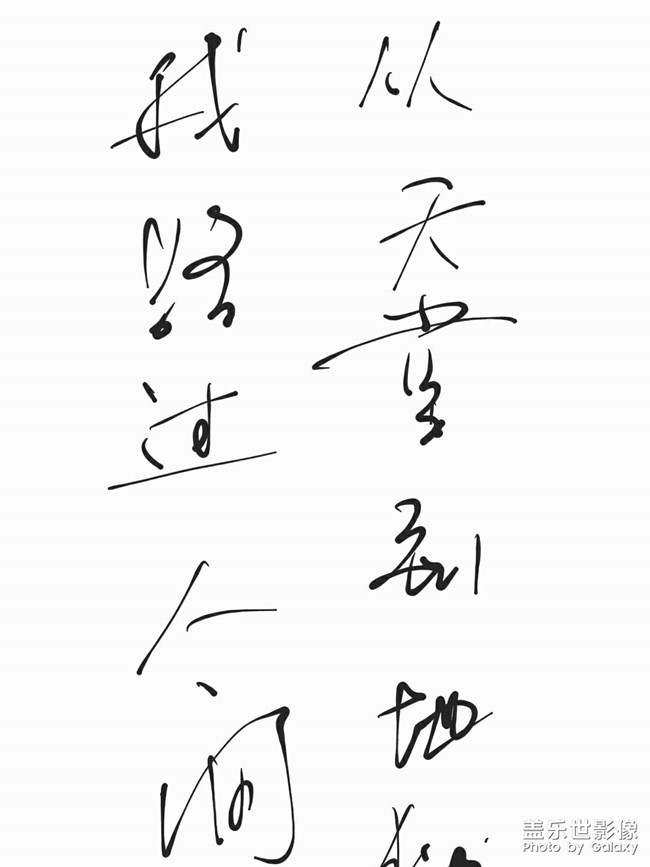 从天堂到地
我路过人间
盖乐世影像
Photo by Galaxy